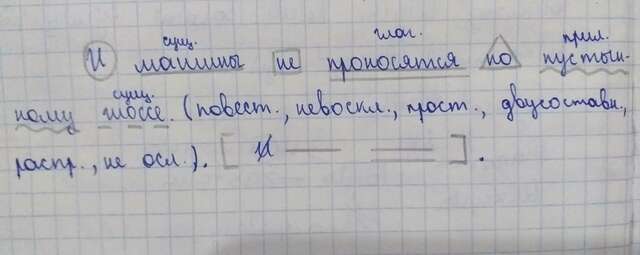 сущ. глаг. прил.
И машины не проносятся по пустын-
сущ.
ному шоссе. (повест., невоскл., прост., двусоставн.,
распр., не осл.). [ И ].